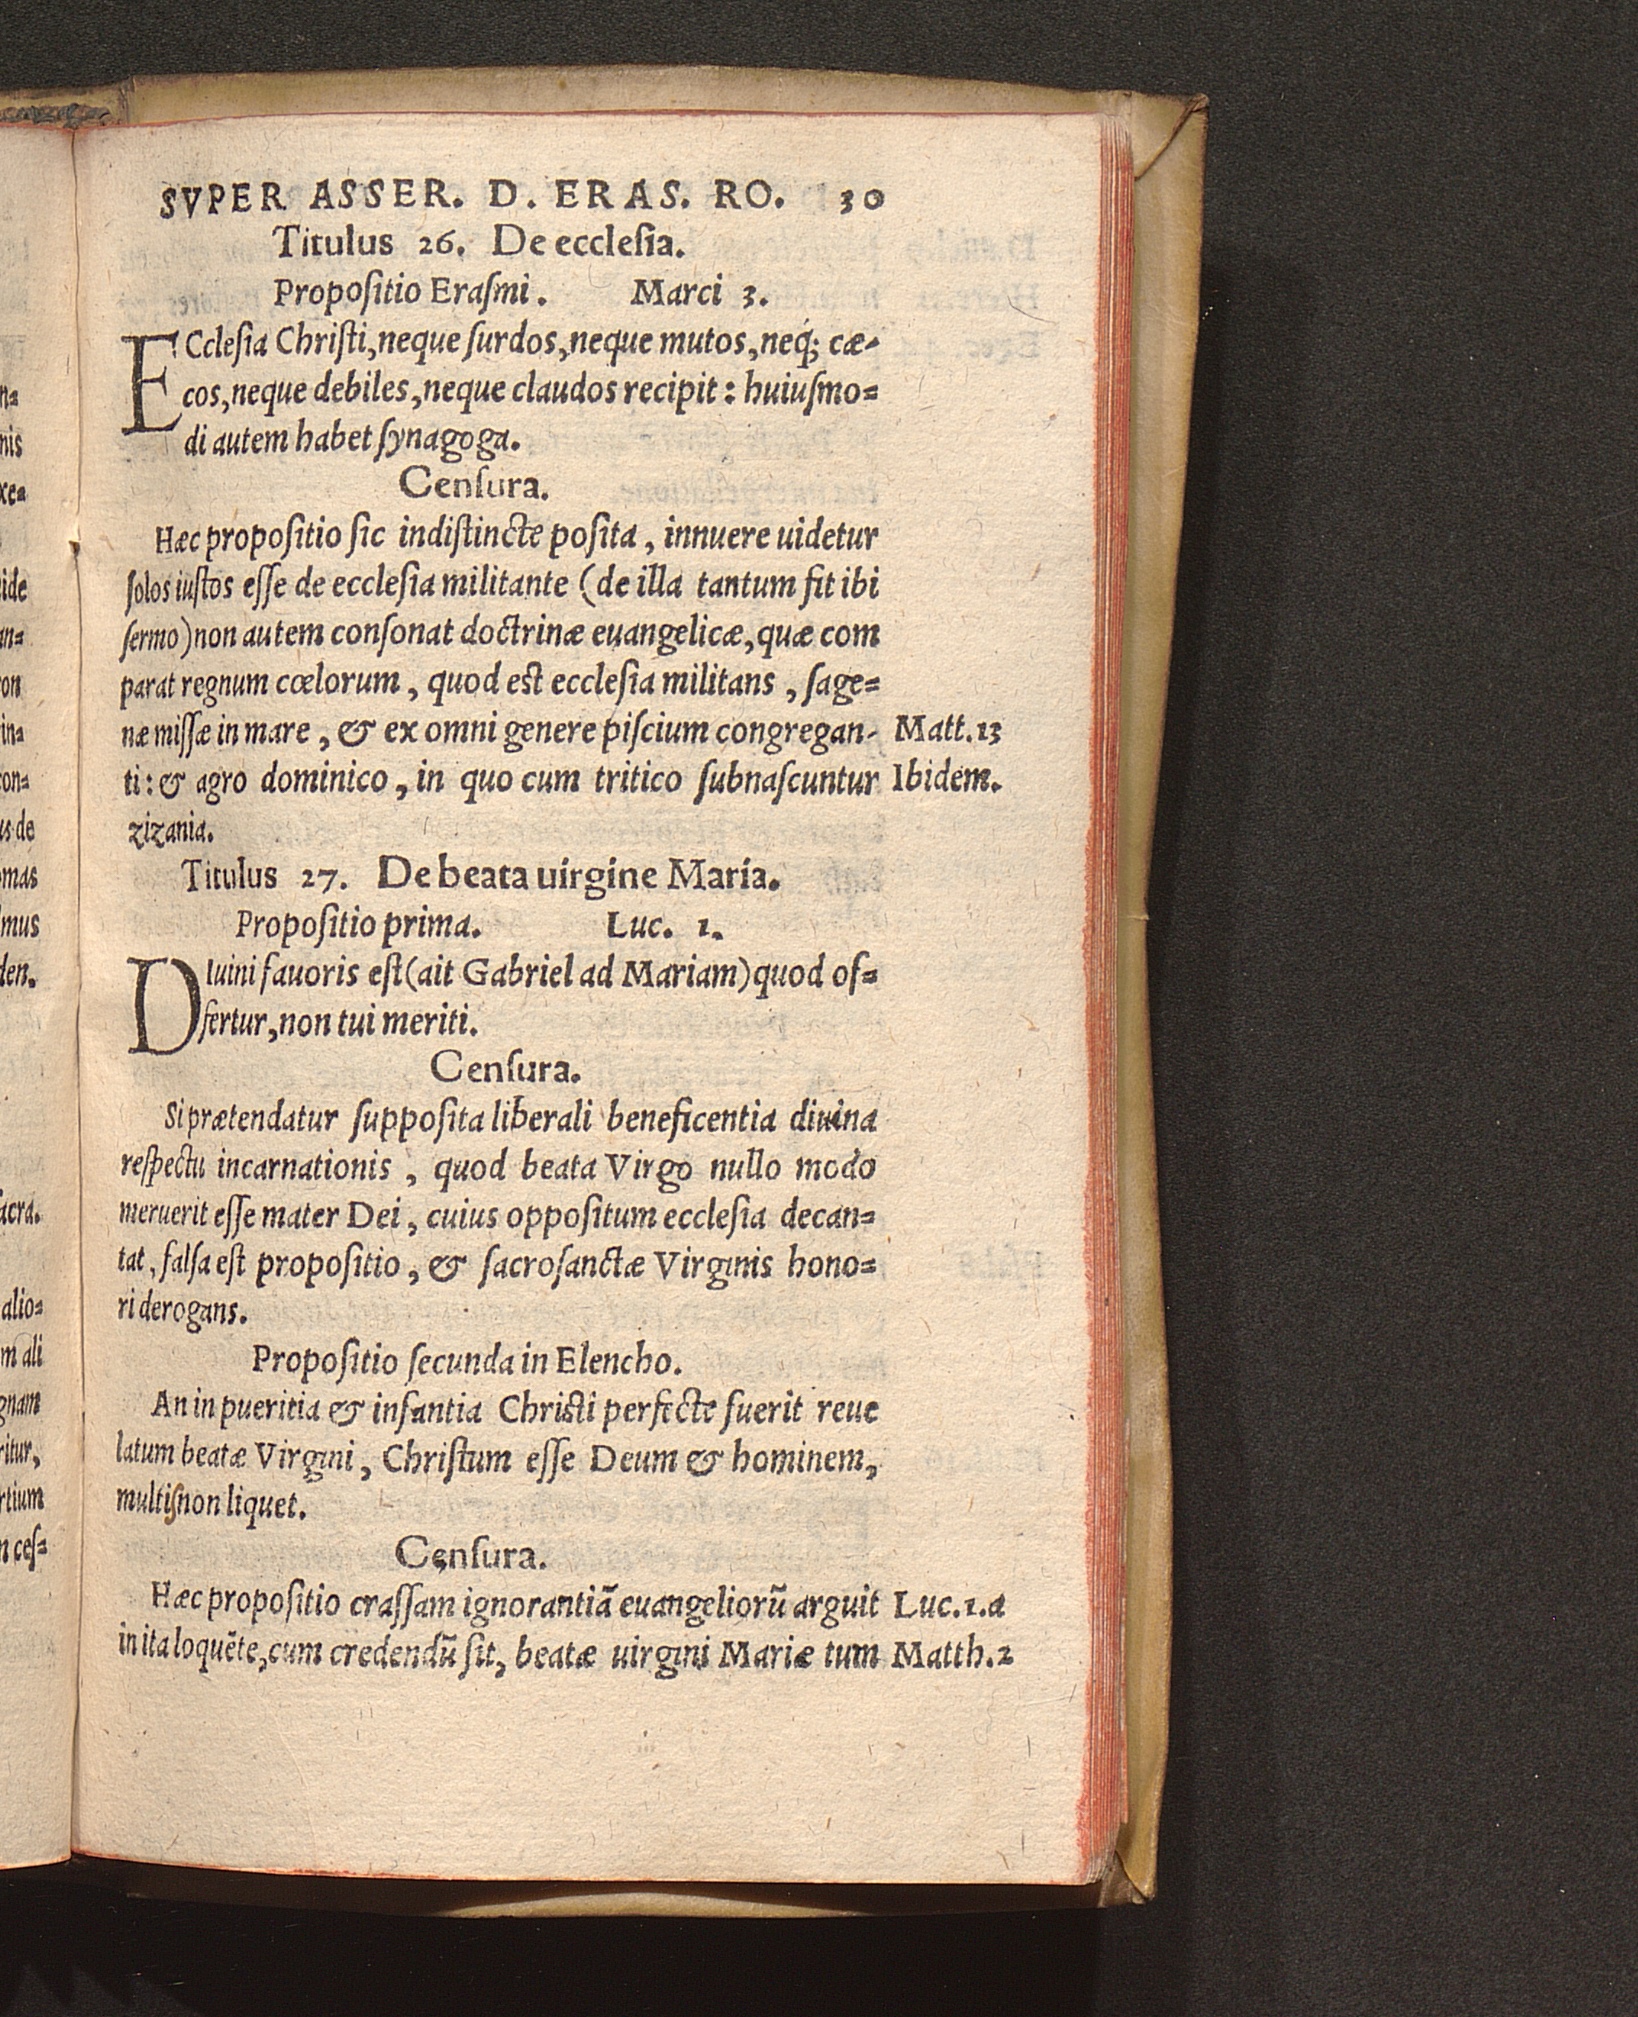 SVPER ASSER. D. ERAS. RO. 30
Titulus 26. De ecclesia.
Propositio Erasmi. Marci 3.
ECclesia Christi, neque surdos, neque mutos, neq; cæ-
cos, neque debiles, neque claudos recipit: huiusmo=
di autem habet synagoga.
Censura.
Hæc propositio sic indistincte posita, innuere uidetur
solos iustos esse de ecclesia militante (de illa tantum fit ibi
sermo) non autem consonat doctrinæ euangelicæ, quæ com
parat regnum cœlorum, quod est ecclesia militans, sage=
næ missæ in mare, & ex omni genere piscium congregan- Matt. 13
ti: & agro dominico, in quo cum tritico subnascuntur Ibidem.
zizania.
Titulus 27. De beata uirgine Maria.
Propositio prima. Luc. 1.
DIuini fauoris est (ait Gabriel ad Mariam) quod of=
fertur, non tui meriti.
Censura.
Si prætendatur supposita liberali beneficentia diuina
respectu incarnationis, quod beata Virgo nullo modo
meruerit esse mater Dei, cuius oppositum ecclesia decan=
tat, falsa est propositio, & sacrosanctæ Virginis hono=
ri derogans.
Propositio secunda in Elencho.
An in pueritia & infantia Christi perfecte fuerit reue
latum beatæ Virgini, Christum esse Deum & hominem,
multis non liquet.
Censura.
Hæc propositio crassam ignorantiã euangeliorũ arguit Luc. 1. a
in ita loquẽte, cum credendũ sit, beatæ uirgini Mariæ tum Matth. 2